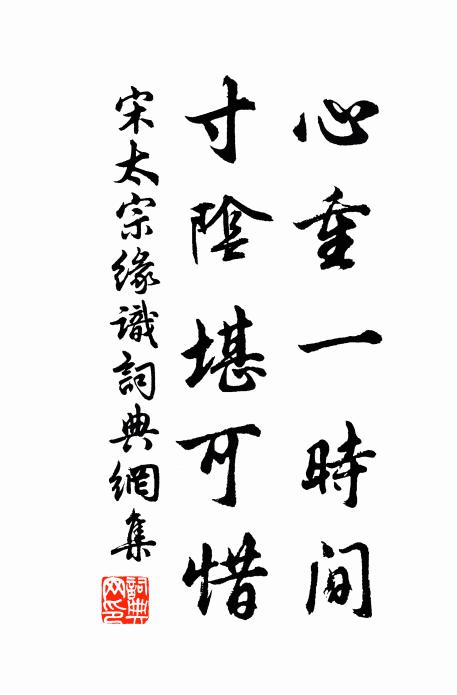 心重一時間
寸陰堪可惜
宋太宗緣識詞典網集
詞典
网印